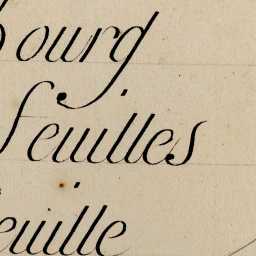 ourg
feuilles
euille